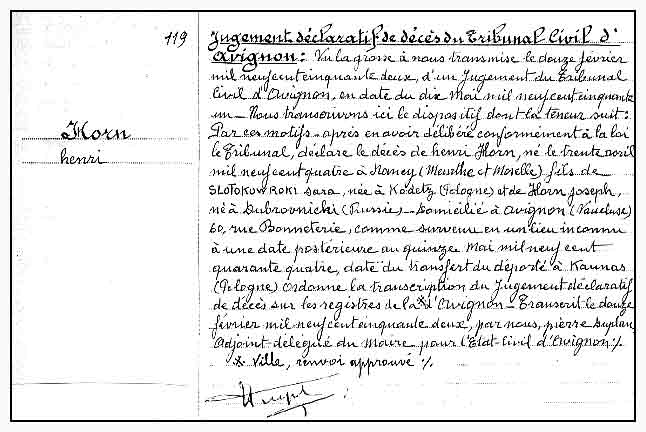 119
Horn
henri
Jugement déclaratif de décès du Tribunal Civil d'
Avignon: Vu la grosse à nous transmise le douze février
mil neuf cent cinquante deux, d'un Jugement du Tribunal
Civil d'Avignon, en date du dix Mai mil neuf cent cinquante
un — Nous transcrivons ici le dispositif dont la teneur suit:
Par ces motifs — après en avoir délibéré conformément à la loi
le Tribunal, déclare le décès de henri Horn, né le trente avril
mil neuf cent quatre à Nancy (Meurthe et Moselle) fils de
SLOTOKOWROKI sara, née à Kodetz (Pologne) et de Horn Joseph,
né à Dubrovnicki (Russie) — Domicilié à Avignon (Vaucluse)
60, rue Bonneterie, comme survenu en un lieu inconnu
à une date postérieure au quinze Mai mil neuf cent
quarante quatre, date du transfert du déporté à Kaunas
(Pologne) Ordonne la transcription du Jugement déclaratif
de décès sur les registres de la X d'Avignon — Transcrit le douze
février mil neuf cent cinquante deux, par nous, pierre Duplan,
Adjoint délégué du Maire pour l'Etat-Civil d'Avignon ./.
X Ville, renvoi approuvé ./.